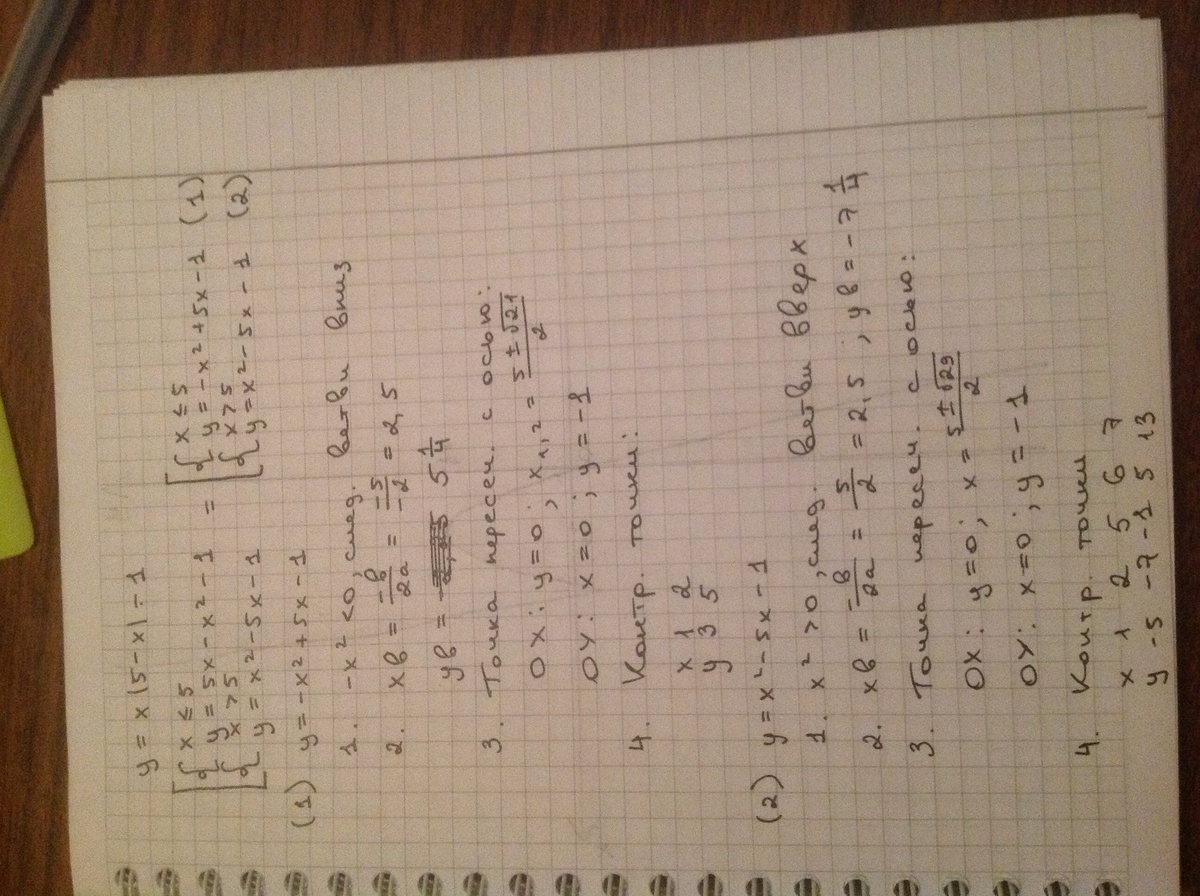 y = x|5-x|-1
[ { x ≤ 5
y = 5x - x² - 1 = [ { x ≤ 5
y = -x² + 5x - 1 (1)
{ x > 5
y = x² - 5x - 1 { x > 5
y = x² - 5x - 1 (2)
(1) y = -x² + 5x - 1
1. -x² < 0, след. ветви вниз
2. xв = -в/2a = -5/-2 = 2,5
yв = 5 1/4
3. Точка пересеч. с осью:
OX: y=0; x1,2 = 5±√21/2
OY: x=0; y=-1
4. Контр. точки:
x 1 2
y 3 5
(2) y = x² - 5x - 1
1. x² > 0, след. ветви вверх
2. xв = -в/2a = 5/2 = 2,5; yв = -7 1/4
3. Точка пересеч. с осью:
OX: y=0; x = 5±√29/2
OY: x=0; y=-1
4. Контр. точки
x 1 2 5 6 7
y -5 -7 -1 5 13